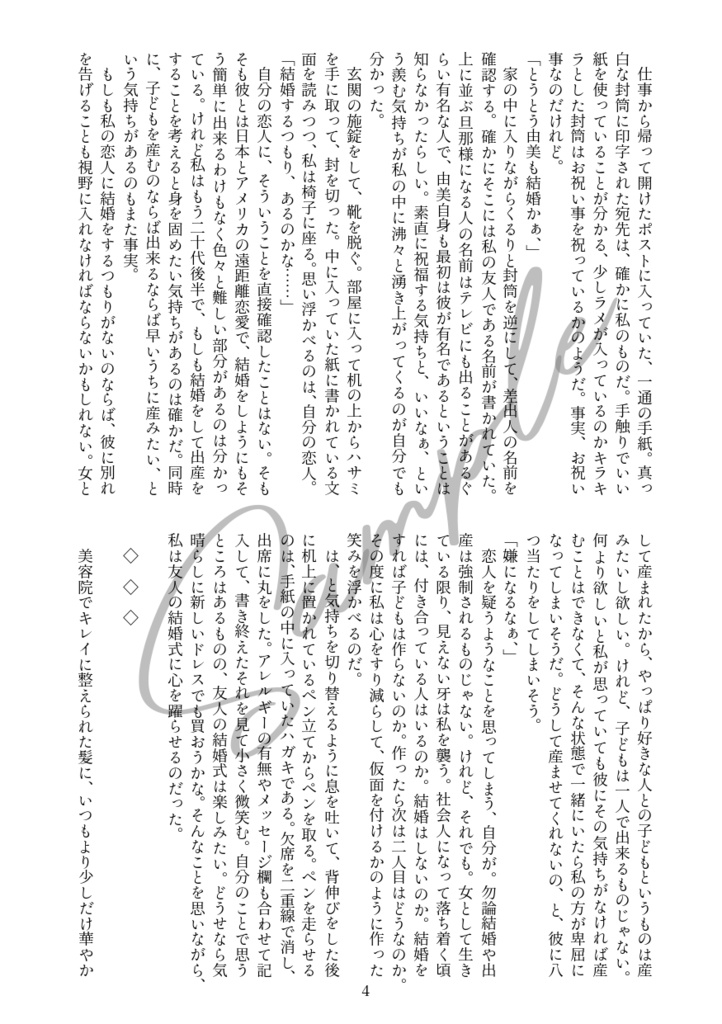 仕事から帰って開けたポストに入っていた、一通の手紙。真っ
白な封筒に印字された宛先は、確かに私のものだ。手触りでいい
紙を使っていることが分かる、少しラメが入っているのかキラキ
ラとした封筒はお祝い事を祝っているかのようだ。事実、お祝い
事なのだけれど。
「とうとう由美も結婚かぁ、」
　家の中に入りながらくるりと封筒を逆にして、差出人の名前を
確認する。確かにそこには私の友人である名前が書かれていた。
上に並ぶ旦那様になる人の名前はテレビにも出ることがあるぐ
らい有名な人で、由美自身も最初は彼が有名であるということは
知らなかったらしい。素直に祝福する気持ちと、いいなぁ、とい
う羨む気持ちが私の中に沸々と湧き上がってくるのが自分でも
分かった。
　玄関の施錠をして、靴を脱ぐ。部屋に入って机の上からハサミ
を手に取って、封を切った。中に入っていた紙に書かれている文
面を読みつつ、私は椅子に座る。思い浮かべるのは、自分の恋人。
「結婚するつもり、あるのかな……」
　自分の恋人に、そういうことを直接確認したことはない。そも
そも彼とは日本とアメリカの遠距離恋愛で、結婚をしようにもそ
う簡単に出来るわけもなく色々と難しい部分があるのは分かっ
ている。けれど私はもう二十代後半で、もしも結婚をして出産を
することを考えると身を固めたい気持ちがあるのは確かだ。同時
に、子どもを産むのならば出来るならば早いうちに産みたい、と
いう気持ちがあるのもまた事実。
　もしも私の恋人に結婚をするつもりがないのならば、彼に別れ
を告げることも視野に入れなければならないかもしれない。女と
して産まれたから、やっぱり好きな人との子どもというものは産
みたいし欲しい。けれど、子どもは一人で出来るものじゃない。
何より欲しいと私が思っていても彼にその気持ちがなければ産
むことはできなくて、そんな状態で一緒にいたら私の方が卑屈に
なってしまいそうだ。どうして産ませてくれないの、と、彼に八
つ当たりをしてしまいそう。
「嫌になるなぁ、」
　恋人を疑うようなことを思ってしまう、自分が。勿論結婚や出
産は強制されるものじゃない。けれど、それでも。女として生き
ている限り、見えない牙は私を襲う。社会人になって落ち着く頃
には、付き合っている人はいるのか。結婚はしないのか。結婚を
すれば子どもは作らないのか。作ったら次は二人目はどうなのか。
その度に私は心をすり減らして、仮面を付けるかのように作った
笑みを浮かべるのだ。
　は、と気持ちを切り替えるように息を吐いて、背伸びをした後
に机上に置かれているペン立てからペンを取る。ペンを走らせる
のは、手紙の中に入っていたハガキである。欠席を二重線で消し、
出席に丸をした。アレルギーの有無やメッセージ欄も合わせて記
入して、書き終えたそれを見て小さく微笑む。自分のことで思う
ところはあるものの、友人の結婚式は楽しみたい。どうせなら気
晴らしに新しいドレスでも買おうかな。そんなことを思いながら、
私は友人の結婚式に心を躍らせるのだった。
◇　◇　◇
　美容院でキレイに整えられた髪に、いつもより少しだけ華やか
4
Sample